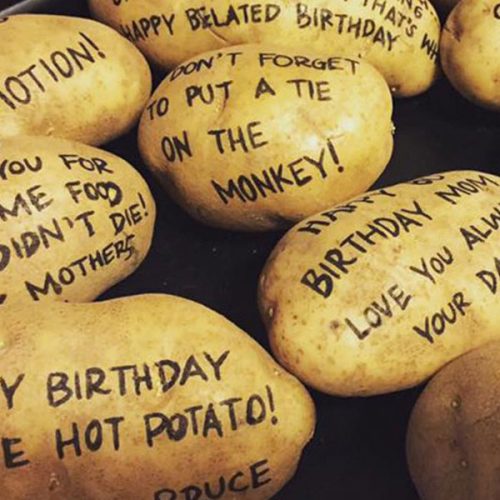 HAPPY BELATED BIRTHDAY
THAT'S
DON'T FORGET
TO PUT A TIE
ON THE
MONKEY!
OTION!
YOU FOR
ME FOOD
DIDN'T DIE!
MOTHERS
BIRTHDAY MOM
LOVE YOU
YOUR
Y BIRTHDAY
E HOT POTATO!
BRUCE